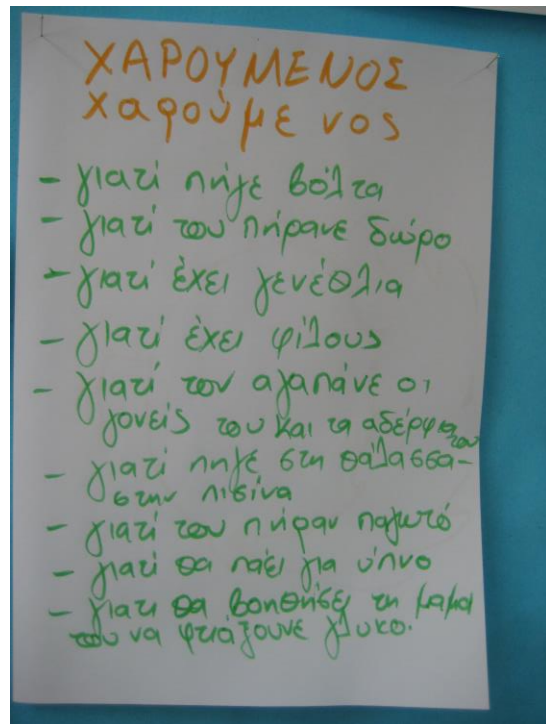 ΧΑΡΟΥΜΕΝΟΣ
χαρούμενος
- γιατί πήγε βόλτα
- γιατί του πήρανε δώρο
- γιατί έχει γενέθλια
- γιατί έχει φίλους
- γιατί τον αγαπάνε οι
γονείς του και τα αδέρφια του
- γιατί πήγε στη θάλασσα-
στην πισίνα
- γιατί του πήραν παγωτό
- γιατί θα πάει για ύπνο
- γιατι θα βοηθήσει τη μαμά
του να φτιάξουνε γλυκο.